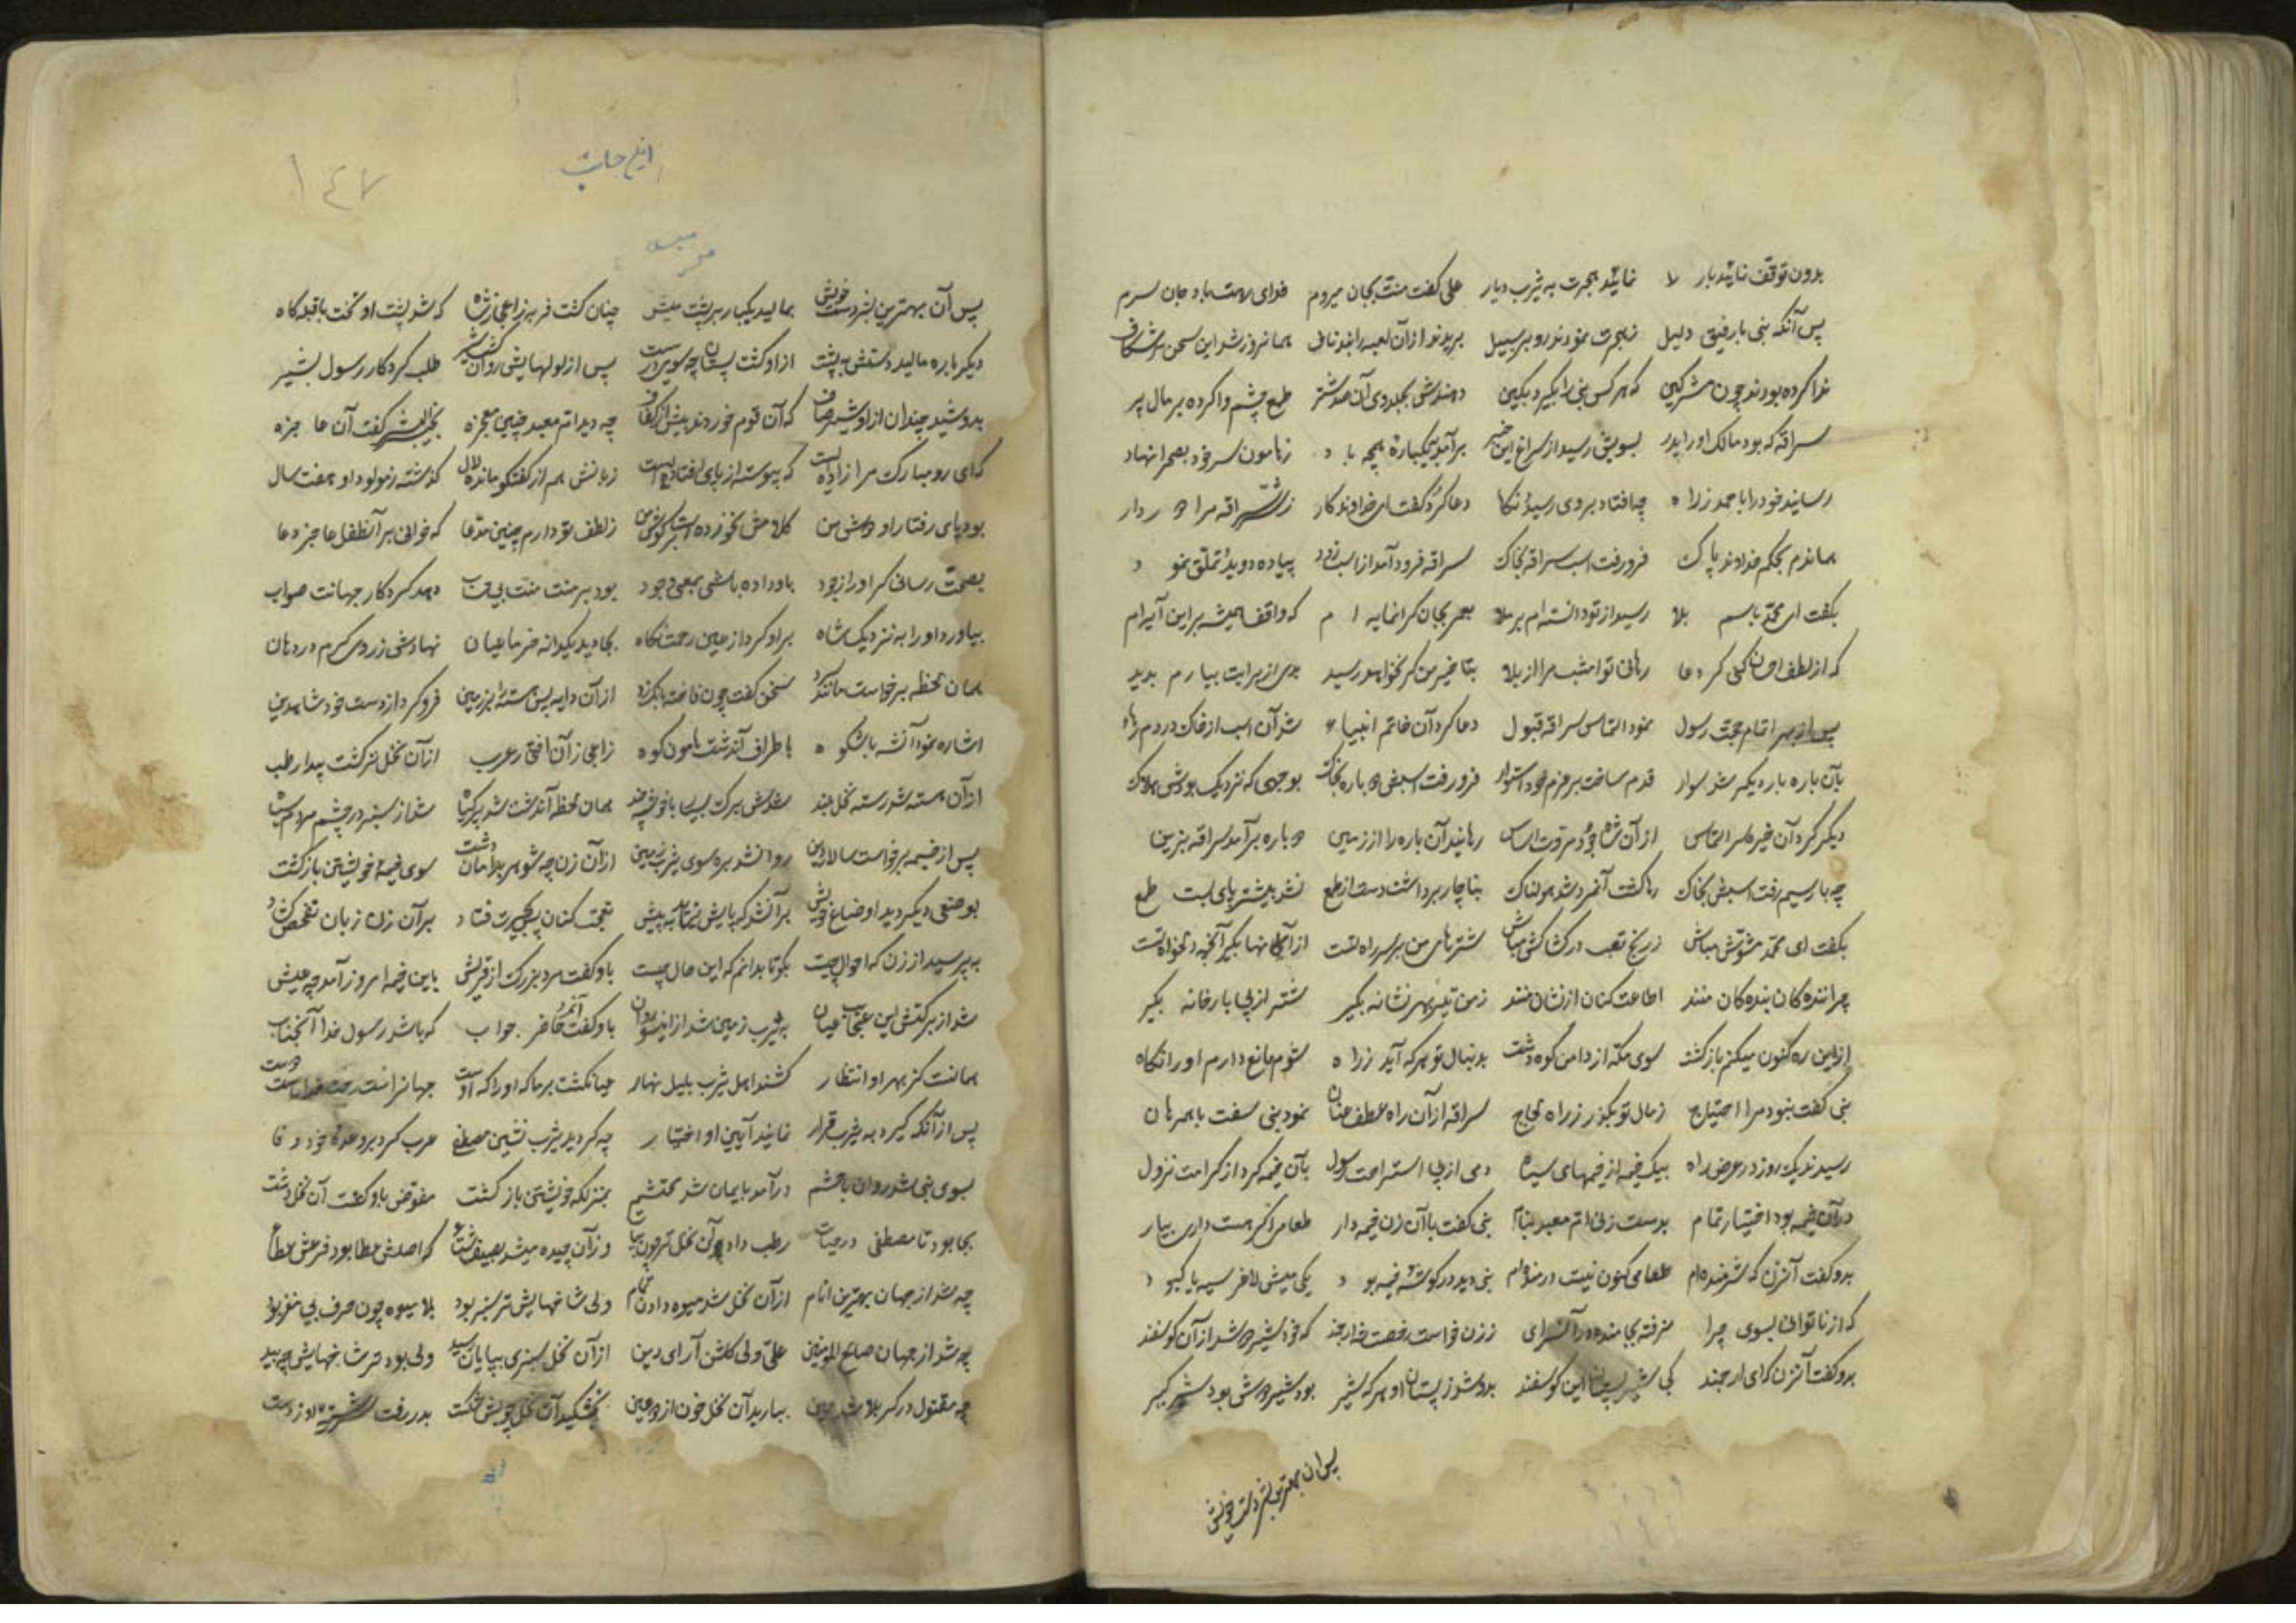 بدون توقف نمائید بار نمائید هجرت به یثرب دیار علی گفت منت بجان میروم فدای رهت باد جان سرم
پس آنگه نبی با رفیق دلیل ز هجرت نمودند رو بر سبیل بریدند از آن همانروز شد این سخن
ندا کرده بودند چون مشرکین که هر کس نبی را بگیرد بکین دهندش بجلدوی آن صد شتر طمع چشم وا کرده بر مال پر
سراقه که بود مالک او را پدر بسویش رسید از سراغ این خبر برآمد بیکباره ز هامون سر خود بصحرا نهاد
رسانید خود را با حمد ز راه چه افتاد بر وی رسید نگاه دعا کرد گفت ای خداوندکار ز شر سراقه مرا
هماندم بحکم خداوند پاک فرو رفت اسب سراقه بخاک سراقه فرود آمد از اسب زود پیاده دوید تملق نمود
بگفت ای محمد رسید از تو دانسته ام بر ملا بجان گرانمایه ام که واقف
که از لطف احسان کنی گر دعا رهانی تو امشب مرا از بلا بتا خیر من کر نخواهد رسید بدی از برایت نیارم پدید
پس از بهر اتمام حجت رسول نمود التماس سراقه قبول دعا کرد آن خاتم انبیا شد آن اسب از خاک در دم رها
بآن باره بار دیگر شد سوار قدم ساخت بر عزم خود استوار فرو رفت اسبش دوباره بخاک بوجهی که نزدیک بودش هلاک
دیگر کرد آن خیره سر التماس از آن شاه جود مروت اساس رهانید آن باره را از زمین دوباره برآمد سراقه بزین
چه بار سیم رفت اسبش بخاک رها گشت آنمرد شد هولناک بناچار برداشت دست از طمع نشد بیشتر پای بست طمع
بگفت ای محمد مشوش مباش ز رنج تعب در کشاکش مباش شترهای من بر سر راه تست از آنها بگیر آنچه دلخواه تست
چراننده کان بنده کان منند اطاعت کنان از نشان منند ز من تیر بهر نشانه بگیر شتر از پی بار خانه بگیر
از این ره کنون میکنم بازگشت سوی مکه از دامن کوه دشت بدنبال تو هر که آید ز راه شوم مانع دارم او را نگاه
نبی گفت نبود مرا احتیاج ز مال تو بگذر ز راه لجاج سراقه از آن راه عطف عنان نمود نبی رفت با همرهان
رسیدند یکروز در عرض راه بیک خیمه از خیمهای سیاه دمی از پی استراحت رسول بآن خیمه کرد از کرامت نزول
در آن خیمه بود اختیار تمام بدست زنی ام معبد بنام نبی گفت با آن زن خیمه دار طعام اگر هست داری بیار
بدو گفت آنزن که شرمنده ام طعامی کنون نیست درمانده ام نبی دید در گوشه خیمه بود یکی میش لاغر سیه یا کبود
که از ناتوانی بسوی چرا نرفته بجا مانده در آنسرای ز زن خواست رخصت که خود شیر دوشد از آن گوسفند
بدو گفت آنزن که ای ارجمند کی شیر پستان این گوسفند بدوشد ز پستان او هر که شیر بود شیر دوشش بود شیرگیر
پس آن بهترین بشر دست خویش
این حاشیه
۱۴۷
پس آن بهترین بشر دست خویش بمالید یکبار بر پشت میش چنان گشت فربه ز اعجاز شاه که شد پشت او تخت با قبله گاه
دیگر باره مالید دستش به پشت از او گشت پستان پس از لولهایش روان گشت شیر طلب کرد کار رسول بشیر
بدوشید چندان از او شیر صاف که آن قوم خوردند بیش از کفاف چه دید ام معبد چنین معجزه بخیر البشر گفت آن عاجزه
که ای رو مبارک مرا زاده ایست که پیوسته از پای افتاده ایست زبانش هم از گفتگو مانده لال گذشته ز مولود او هفت سال
بود پای رفتار او دوش من کلامش نخورده است بر گوش من ز لطف تو دارم چنین مدعا که خوانی بر آنطفل عاجز دعا
بصحت رسانی گر او را ز جود باو داده باشی بمعنی وجود بود بر منت منت بی حساب دهد کردگار جهانت صواب
بیاورد او را به نزدیک شاه بر او کرد از عین رحمت نگاه بجا دید یکدانه خرما عیان نهادش ز روی کرم در دهان
همان لحظه برخاست مانند سخن گفت چون فاخته از آن دایه پس هسته بر زمین فرو کرد از دست خود شاه دین
اشاره نمود آنشه با شکوه باطراف آندشت هامون کوه ز اعجاز آن افتخار عرب از آن نخل تر گشت پیدا رطب
از آن هسته شد رسته نخل بلند شدش برگ بسیار همان لحظه آندشت شد پر گیاه شد از سبزه در چشم مردم سیاه
پس از خیمه برخاست سالار دین روانشد بره سوی یثرب زمین از آن زن چه شوهر بدامان دشت سوی خیمه خویشتن بازگشت
بوضعی دیگر دید اوضاع خویش تعجب کنان بر آن زن زبان تفحص گشاد
بپرسید از زن که احوال چیست بگو تا بدانم که این حال چیست باو گفت مرد بزرگ از قریش باین خیمه امروز آمد چه عیش
شد از برکتش این عجایب عیان به یثرب زمین شد از اینسو روان باو گفت آنمرد حاضر جواب که باشد رسول خدا آنجناب
همانست کز بهر او انتظار کشند اهل یثرب بلیل نهار عیان گشت بر ما که او را که اوست جهانرا
پس از آنکه گیرد به یثرب قرار نمایند آیین او اختیار چه گردید یثرب نشین مصطفی عرب کرد بر وعده خود وفا
بسوی نبی شد روان با حشم درآمد بایمان شد محتشم بمنزلگه خویشتن بازگشت مفوض باو گشت آن نخل دشت
بجا بود تا مصطفی در حیات رطب داد آن نخل تر چون نبات وز آن چیده میشد بصیف شتا که اصلش عطا بود فرعش عطا
چه شد از جهان بهترین انام از آن نخل شد میوه دادن تمام ولی شاخهایش تر سبز بود بلا میوه چون حرف بی مغز بود
چه شد از جهان صالح المومنین علی ولی گلشن آرای دین از آن نخل سبزی بپایان رسید ولی بود تر شاخهایش چه بید
چه مقتول در کربلا شد حسین ببارید آن نخل خون از دو عین بخشکید آن نخل